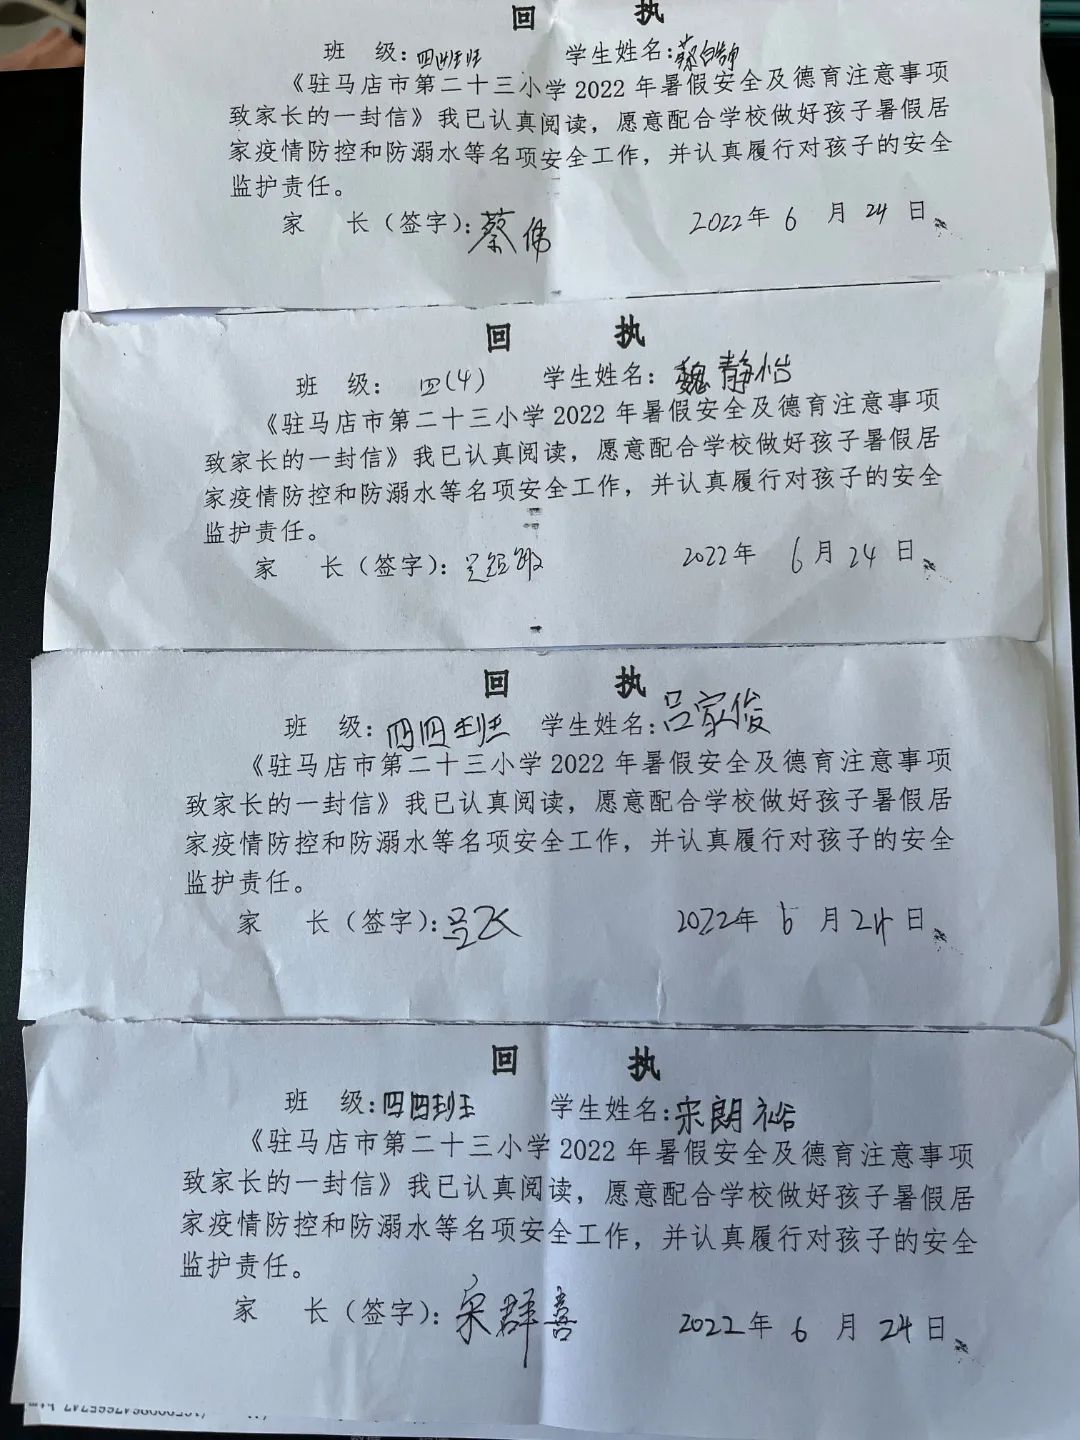 回 执
班 级：四四班 学生姓名：蔡皓静
《驻马店市第二十三小学2022年暑假安全及德育注意事项
致家长的一封信》我已认真阅读，愿意配合学校做好孩子暑假居
家疫情防控和防溺水等名项安全工作，并认真履行对孩子的安全
监护责任。
家 长（签字）：蔡伟 2022年 6 月 24 日
回 执
班 级： 四(4) 学生姓名：魏静怡
《驻马店市第二十三小学2022年暑假安全及德育注意事项
致家长的一封信》我已认真阅读，愿意配合学校做好孩子暑假居
家疫情防控和防溺水等名项安全工作，并认真履行对孩子的安全
监护责任。
家 长（签字）： 2022年 6月 24 日
回 执
班 级：四四班 学生姓名：吕家俊
《驻马店市第二十三小学2022年暑假安全及德育注意事项
致家长的一封信》我已认真阅读，愿意配合学校做好孩子暑假居
家疫情防控和防溺水等名项安全工作，并认真履行对孩子的安全
监护责任。
家 长（签字）：吕飞 2022年 6 月 24 日
回 执
班 级：四四班 学生姓名：宋朗裕
《驻马店市第二十三小学2022年暑假安全及德育注意事项
致家长的一封信》我已认真阅读，愿意配合学校做好孩子暑假居
家疫情防控和防溺水等名项安全工作，并认真履行对孩子的安全
监护责任。
家 长（签字）：宋群善 2022年 6 月 24 日